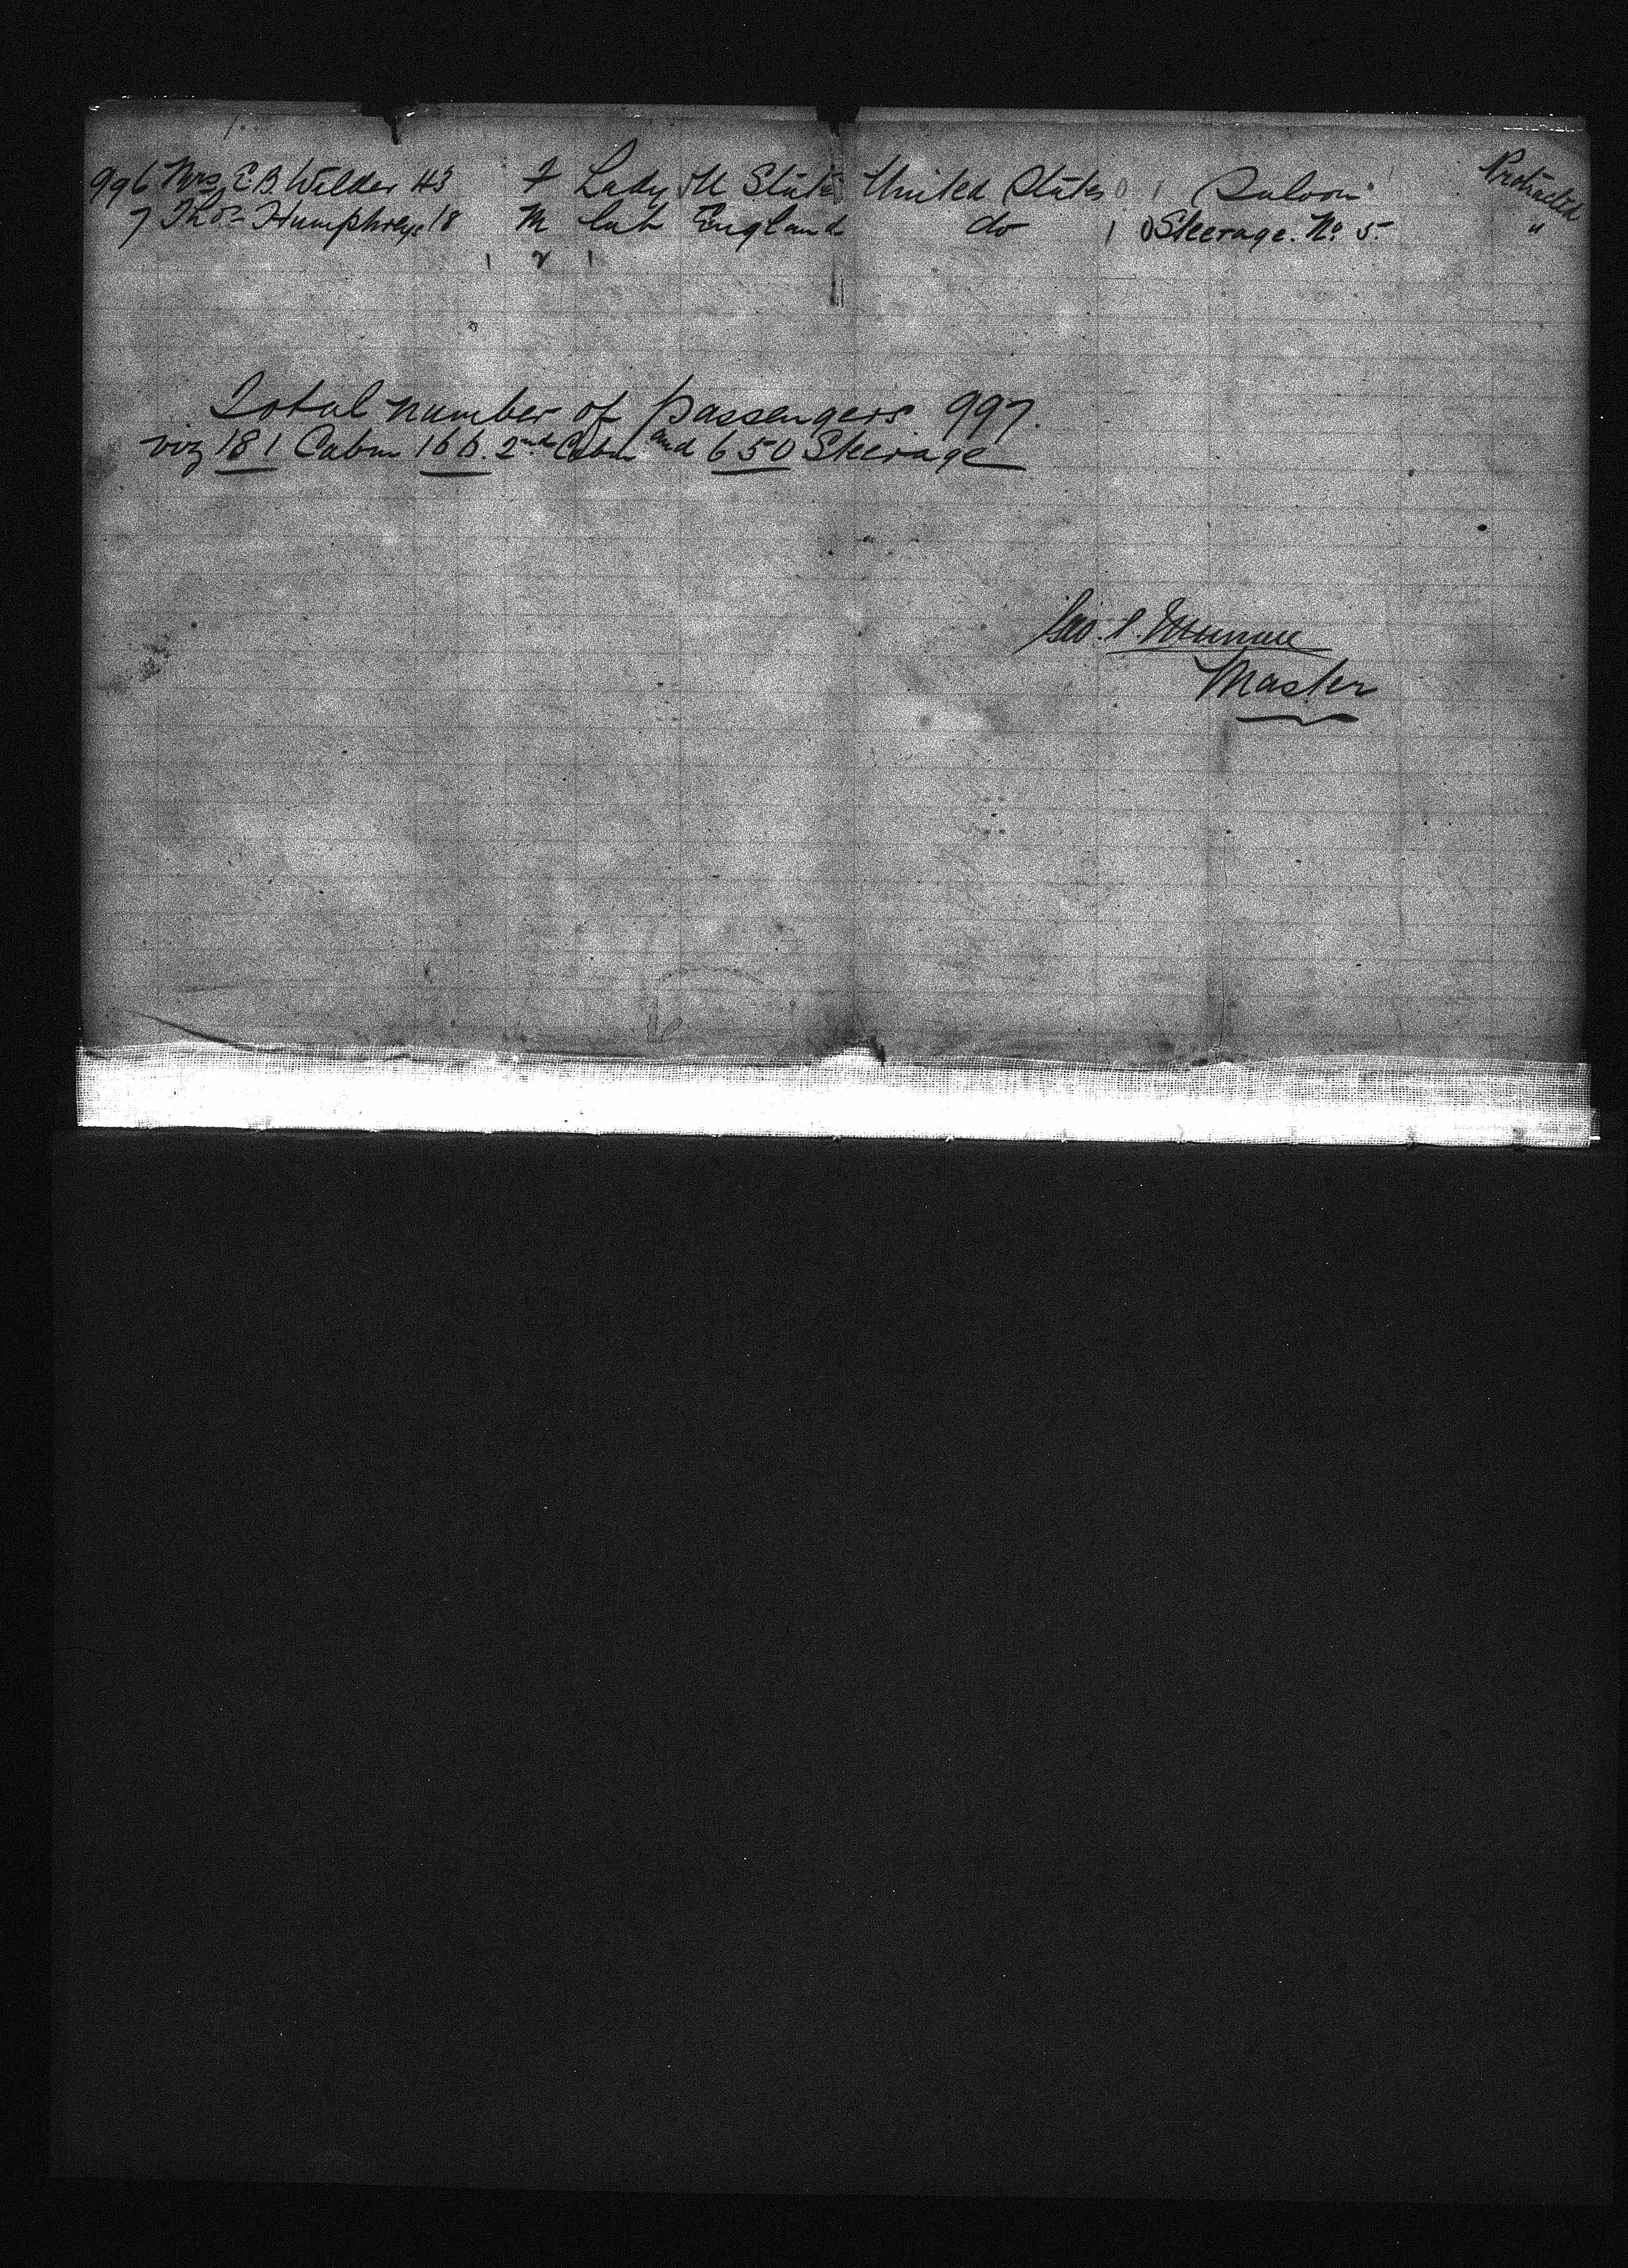 996 Mrs E B Wilder 43 F Lady U States United States 0 1 Saloon Protracted
7 Thos Humphreys 18 M Lab England do 1 0 Steerage. No 5. "
1 2 1
Total number of passengers 997.
viz 181 Cabin 166. 2nd Cabin and 650 Steerage
Geo. S.
Master